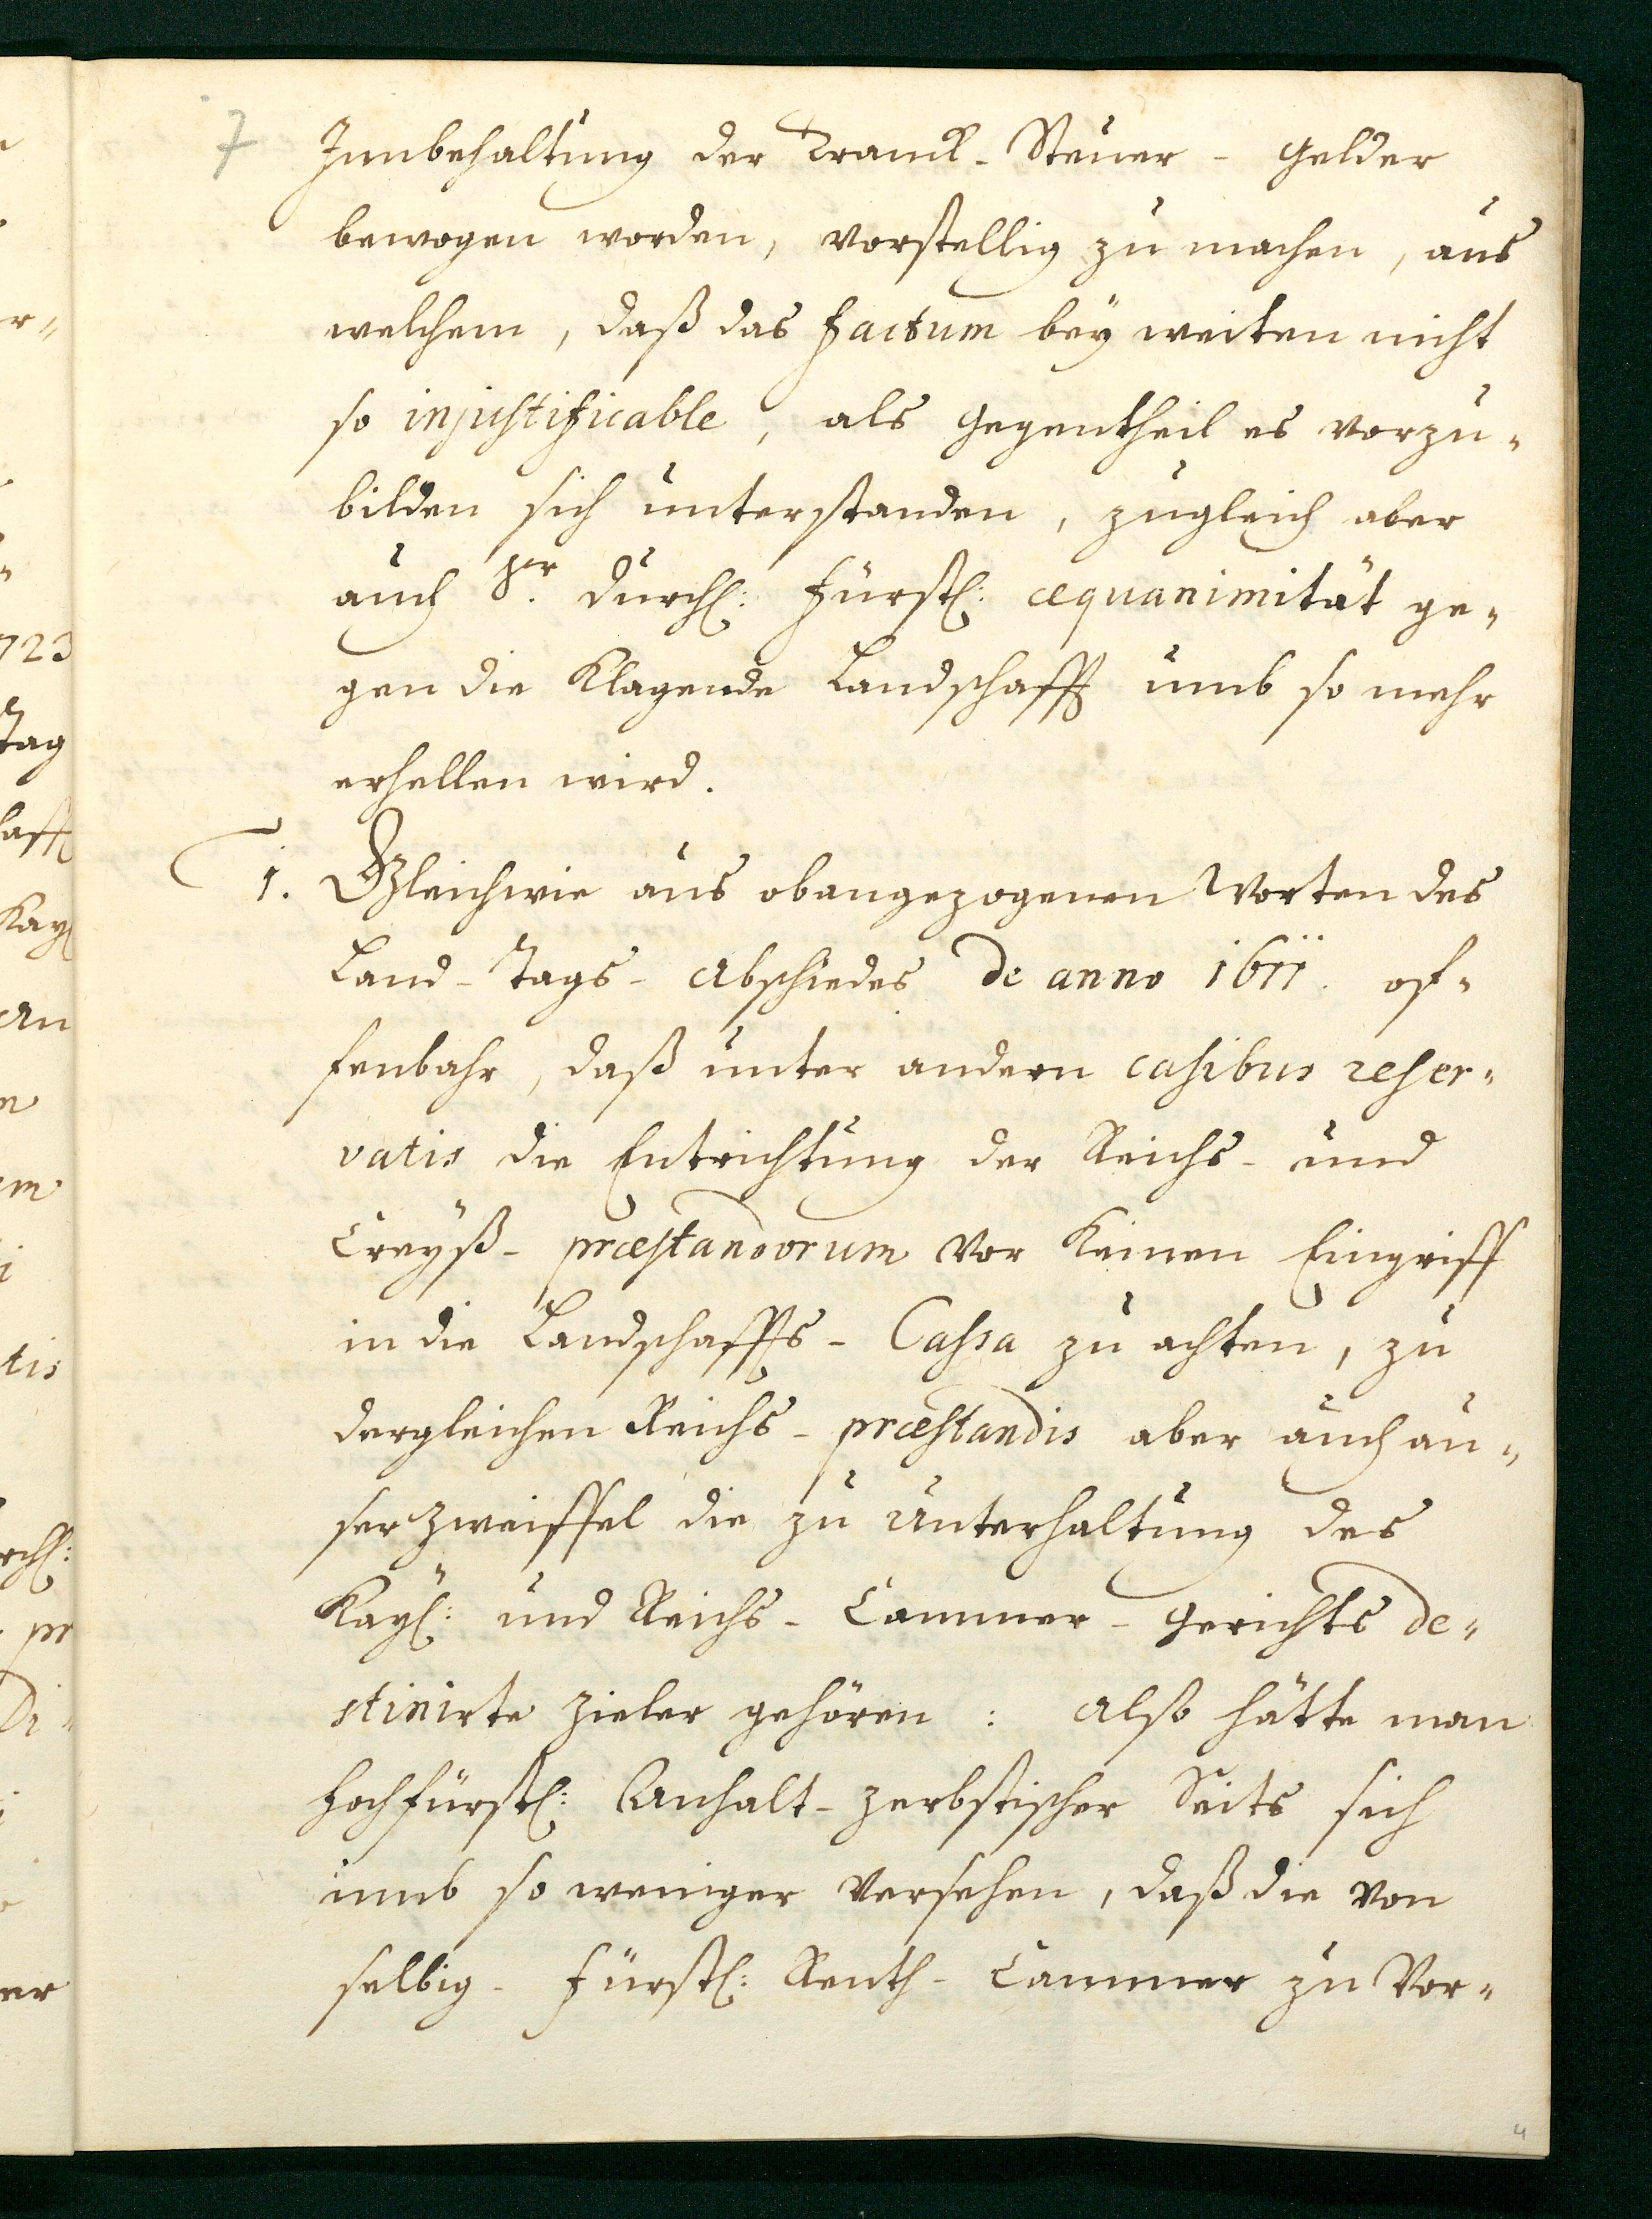 7
Innbehaltung der Tranck-Steuer-Gelder
bewogen worden, vorstellig zu machen, aus
welchem, daß das factum bey weiten nicht
so injustificable, als Gegentheil es vorzu-
bilden sich unterstanden, zugleich aber
auch Sr. Durchl: Fürstl: æquanimität ge-
gen die Klagende Landschafft umb so mehr
erhellen wird.
1. Gleichwie aus obangezogenen Worten des
Land-Tags-Abschiedes de anno 1611. of-
fenbahr, daß unter andern casibus reser-
vatis die Entrichtung der Reichs- und
Creyß-præstandorum vor keinen Eingriff
in die Landschaffts-Cassa zu achten, zu
dergleichen Reichs-præstandis aber auch au-
ser Zweiffel die zu Unterhaltung des
Kayl: und Reichs-Cammer-Gerichts de-
stinirte Zieler gehören: Also hätte man
Hochfürstl: Anhalt-Zerbstischer Seits sich
umb so weniger versehen, daß die von
selbig-Fürstl: Renth-Cammer zu Vor-
4
723
Tag
Kayl
An
tis
pr
Di-
er